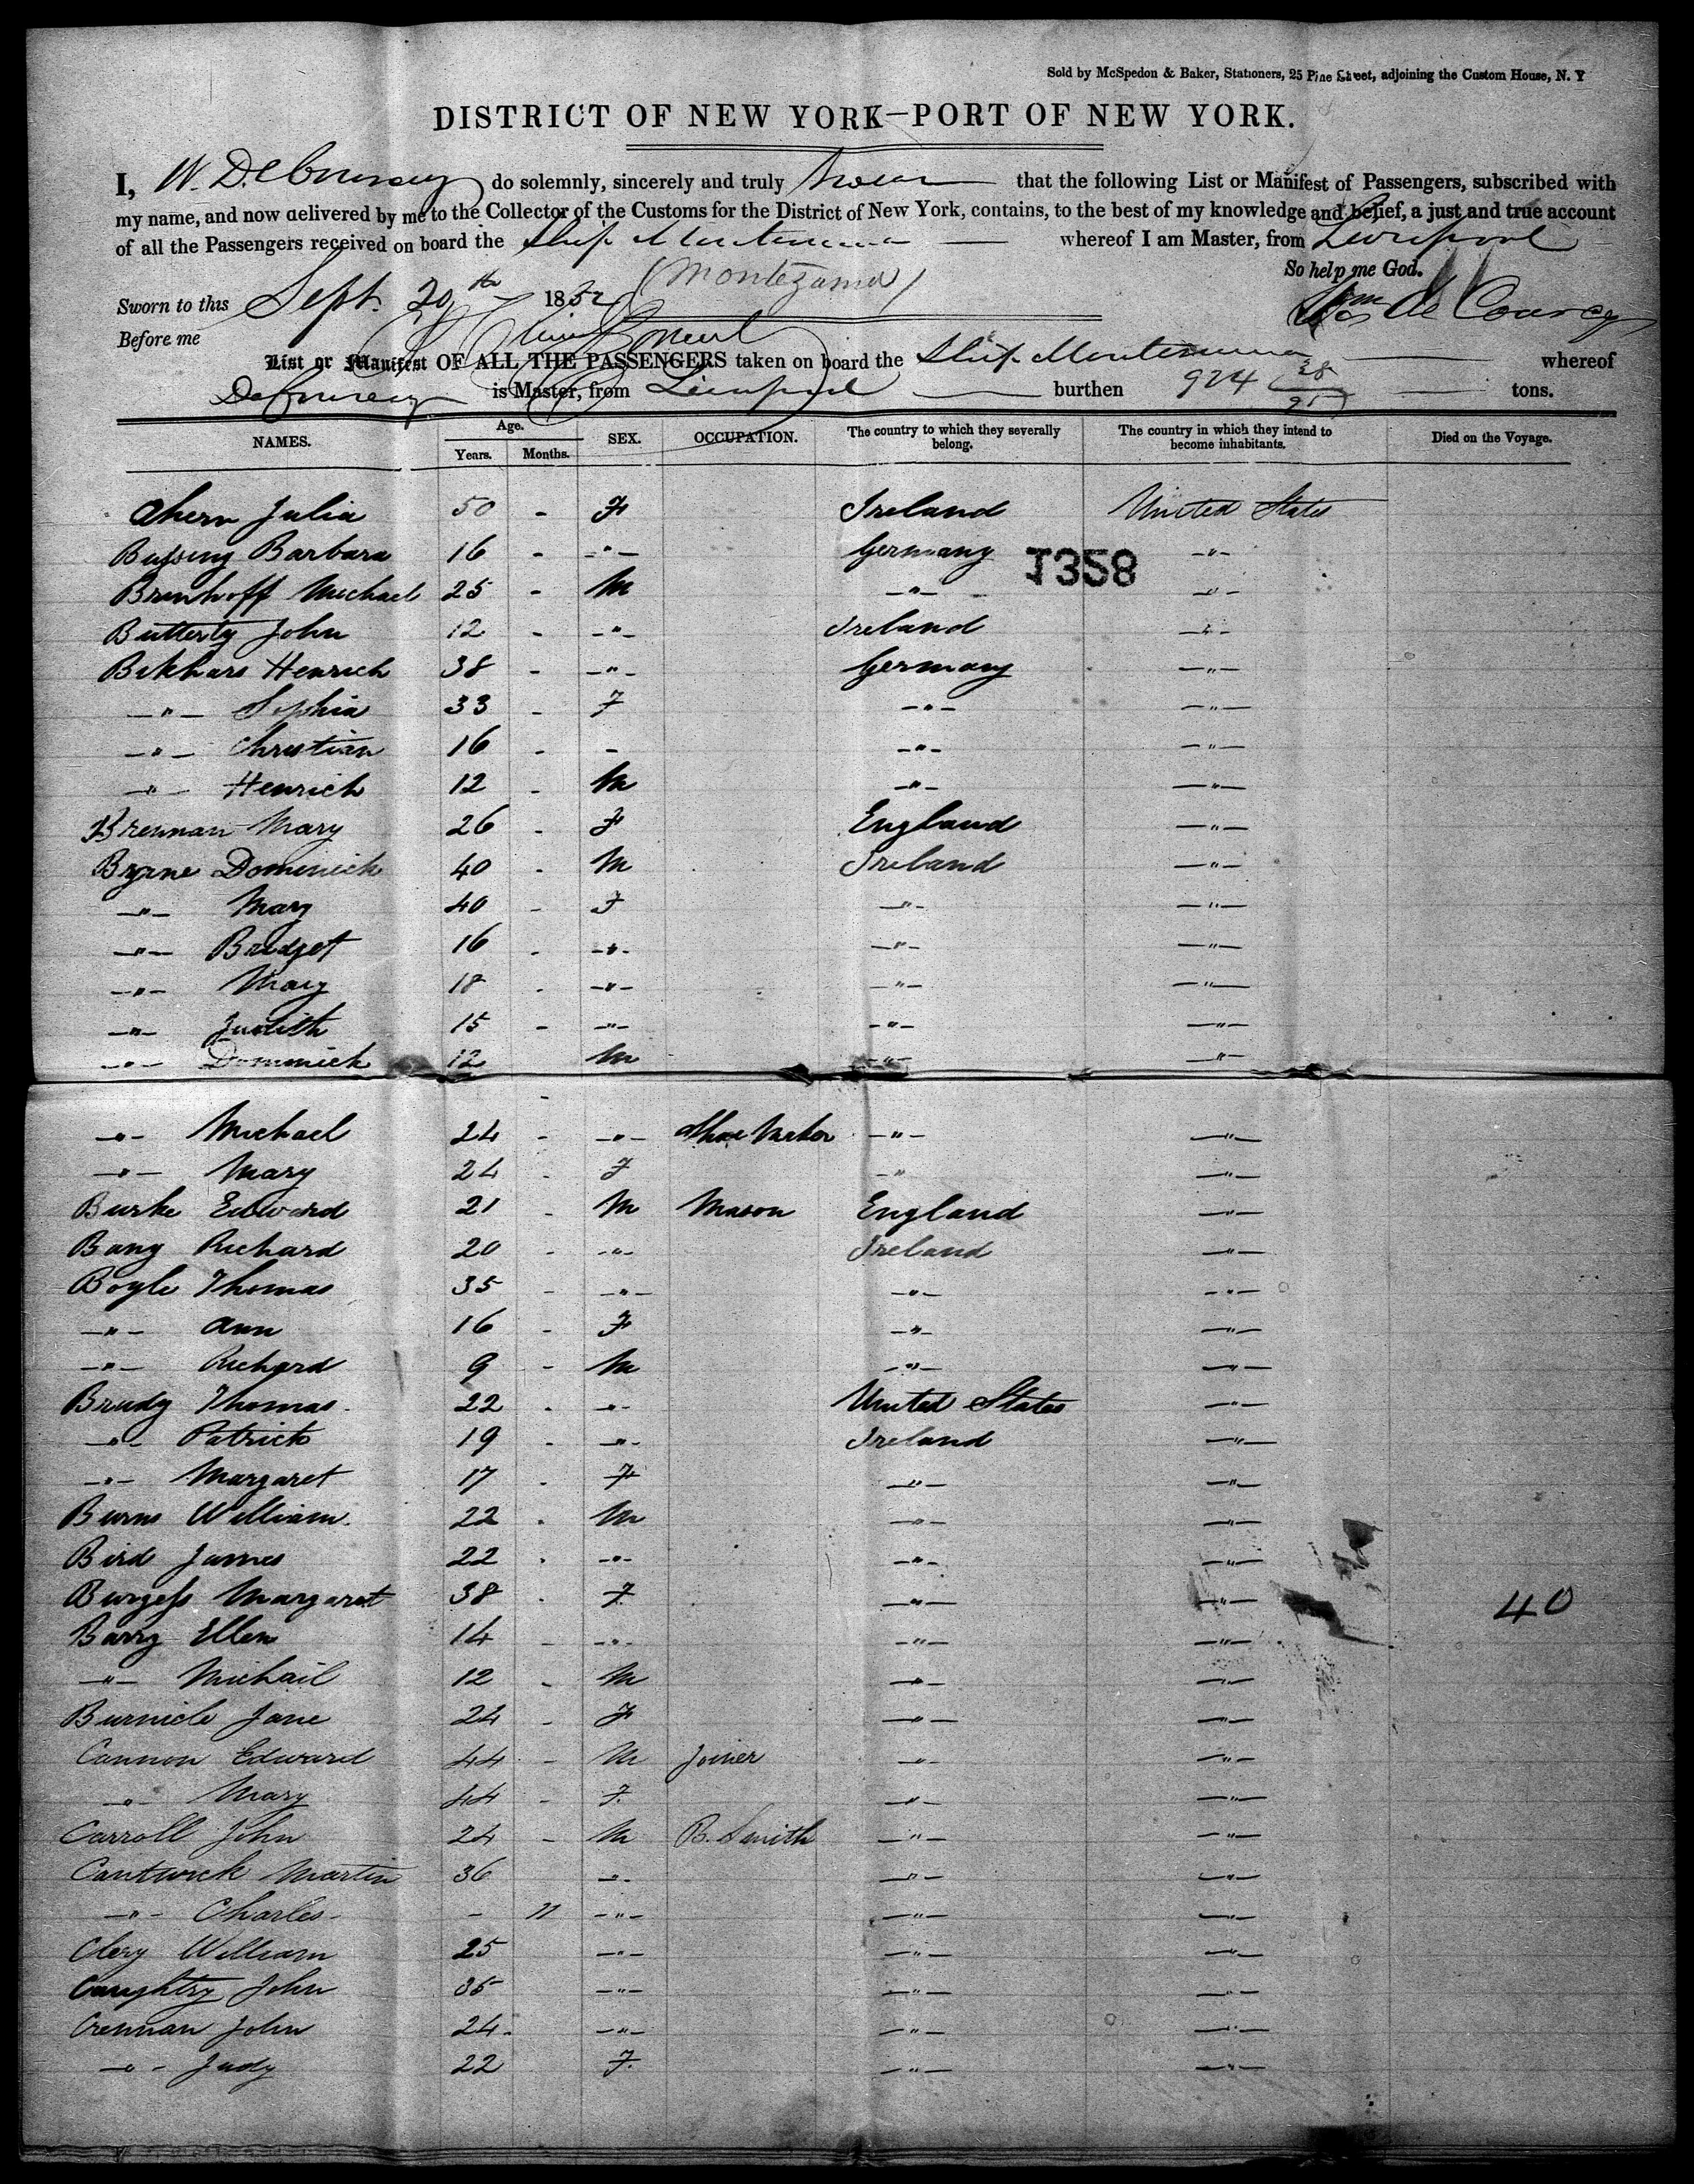 Sold by McSpedon & Baker, Stationers, 25 Pine Street, adjoining the Custom House, N. Y
DISTRICT OF NEW YORK—PORT OF NEW YORK.
I, W. DeCourcey do solemnly, sincerely and truly swear that the following List or Manifest of Passengers, subscribed with
my name, and now delivered by me to the Collector of the Customs for the District of New York, contains, to the best of my knowledge and belief, a just and true account
of all the Passengers received on board the Ship Montezuma whereof I am Master, from Liverpool
So help me God.
Sworn to this Sept. 20th 1852 (Montezuma)
Wm de Courcey
Before me
List or Manifest OF ALL THE PASSENGERS taken on board the Ship Montezuma whereof
DeCourcey is Master, from Liverpool burthen 924 28/95 tons.
NAMES. Age. Years. Months. SEX. OCCUPATION. The country to which they severally belong. The country in which they intend to become inhabitants. Died on the Voyage.
Ahern Julia 50 - F Ireland United States
Bussing Barbara 16 - -"- Germany -"-
1358
Brenhoff Michael 25 - M -"- -"-
Butterly John 12 - -"- Ireland -"-
Bekhars Henrich 38 - -"- Germany -"-
-"- Sophia 33 - F -"- -"-
-"- Christian 16 - - -"- -"-
-"- Henrich 12 - M -"- -"-
Brennan Mary 26 - F England -"-
Byrne Dominick 40 - M Ireland -"-
-"- Mary 40 - F -"- -"-
-"- Bridget 16 - -"- -"- -"-
-"- Mary 18 - -"- -"- -"-
-"- Judith 15 - -"- -"- -"-
-"- Dominick 12 M -"- -"-
-"- Michael 24 - -"- Shoe Maker -"- -"-
-"- Mary 24 - F -" -"-
Burke Edward 21 - M Mason England -"-
Bang Richard 20 - -"- Ireland -"-
Boyle Thomas 35 - -"- -"- -"-
-"- Ann 16 - F -"- -"-
-"- Richard 9 - M -"- -"-
Brudy Thomas 22 - -"- United States -"-
-"- Patrick 19 - -"- Ireland -"-
-"- Margaret 17 - F -"- -"-
Burns William 22 - M -"- -"-
Bird James 22 - -"- -"- -"-
Burgess Margaret 38 - F -"- -"- 40
Barry Ellen 14 - -"- -"- -"-
-"- Michail 12 - M -"- -"-
Burnicle Jane 24 - F -"- -"-
Cannon Edward 44 - M Joiner -"- -"-
-"- Mary 44 - F -"- -"-
Carroll John 24 - M B. Smith -"- -"-
Cantwick Martin 36 -"- -"- -"-
-"- Charles - 11 -"- -"- -"-
Clery William 25 -"- -"- -"-
Caughtry John 35 -"- -"- -"-
Crennan John 24 -"- -"- -"-
-"- Judy 22 F -"- -"-